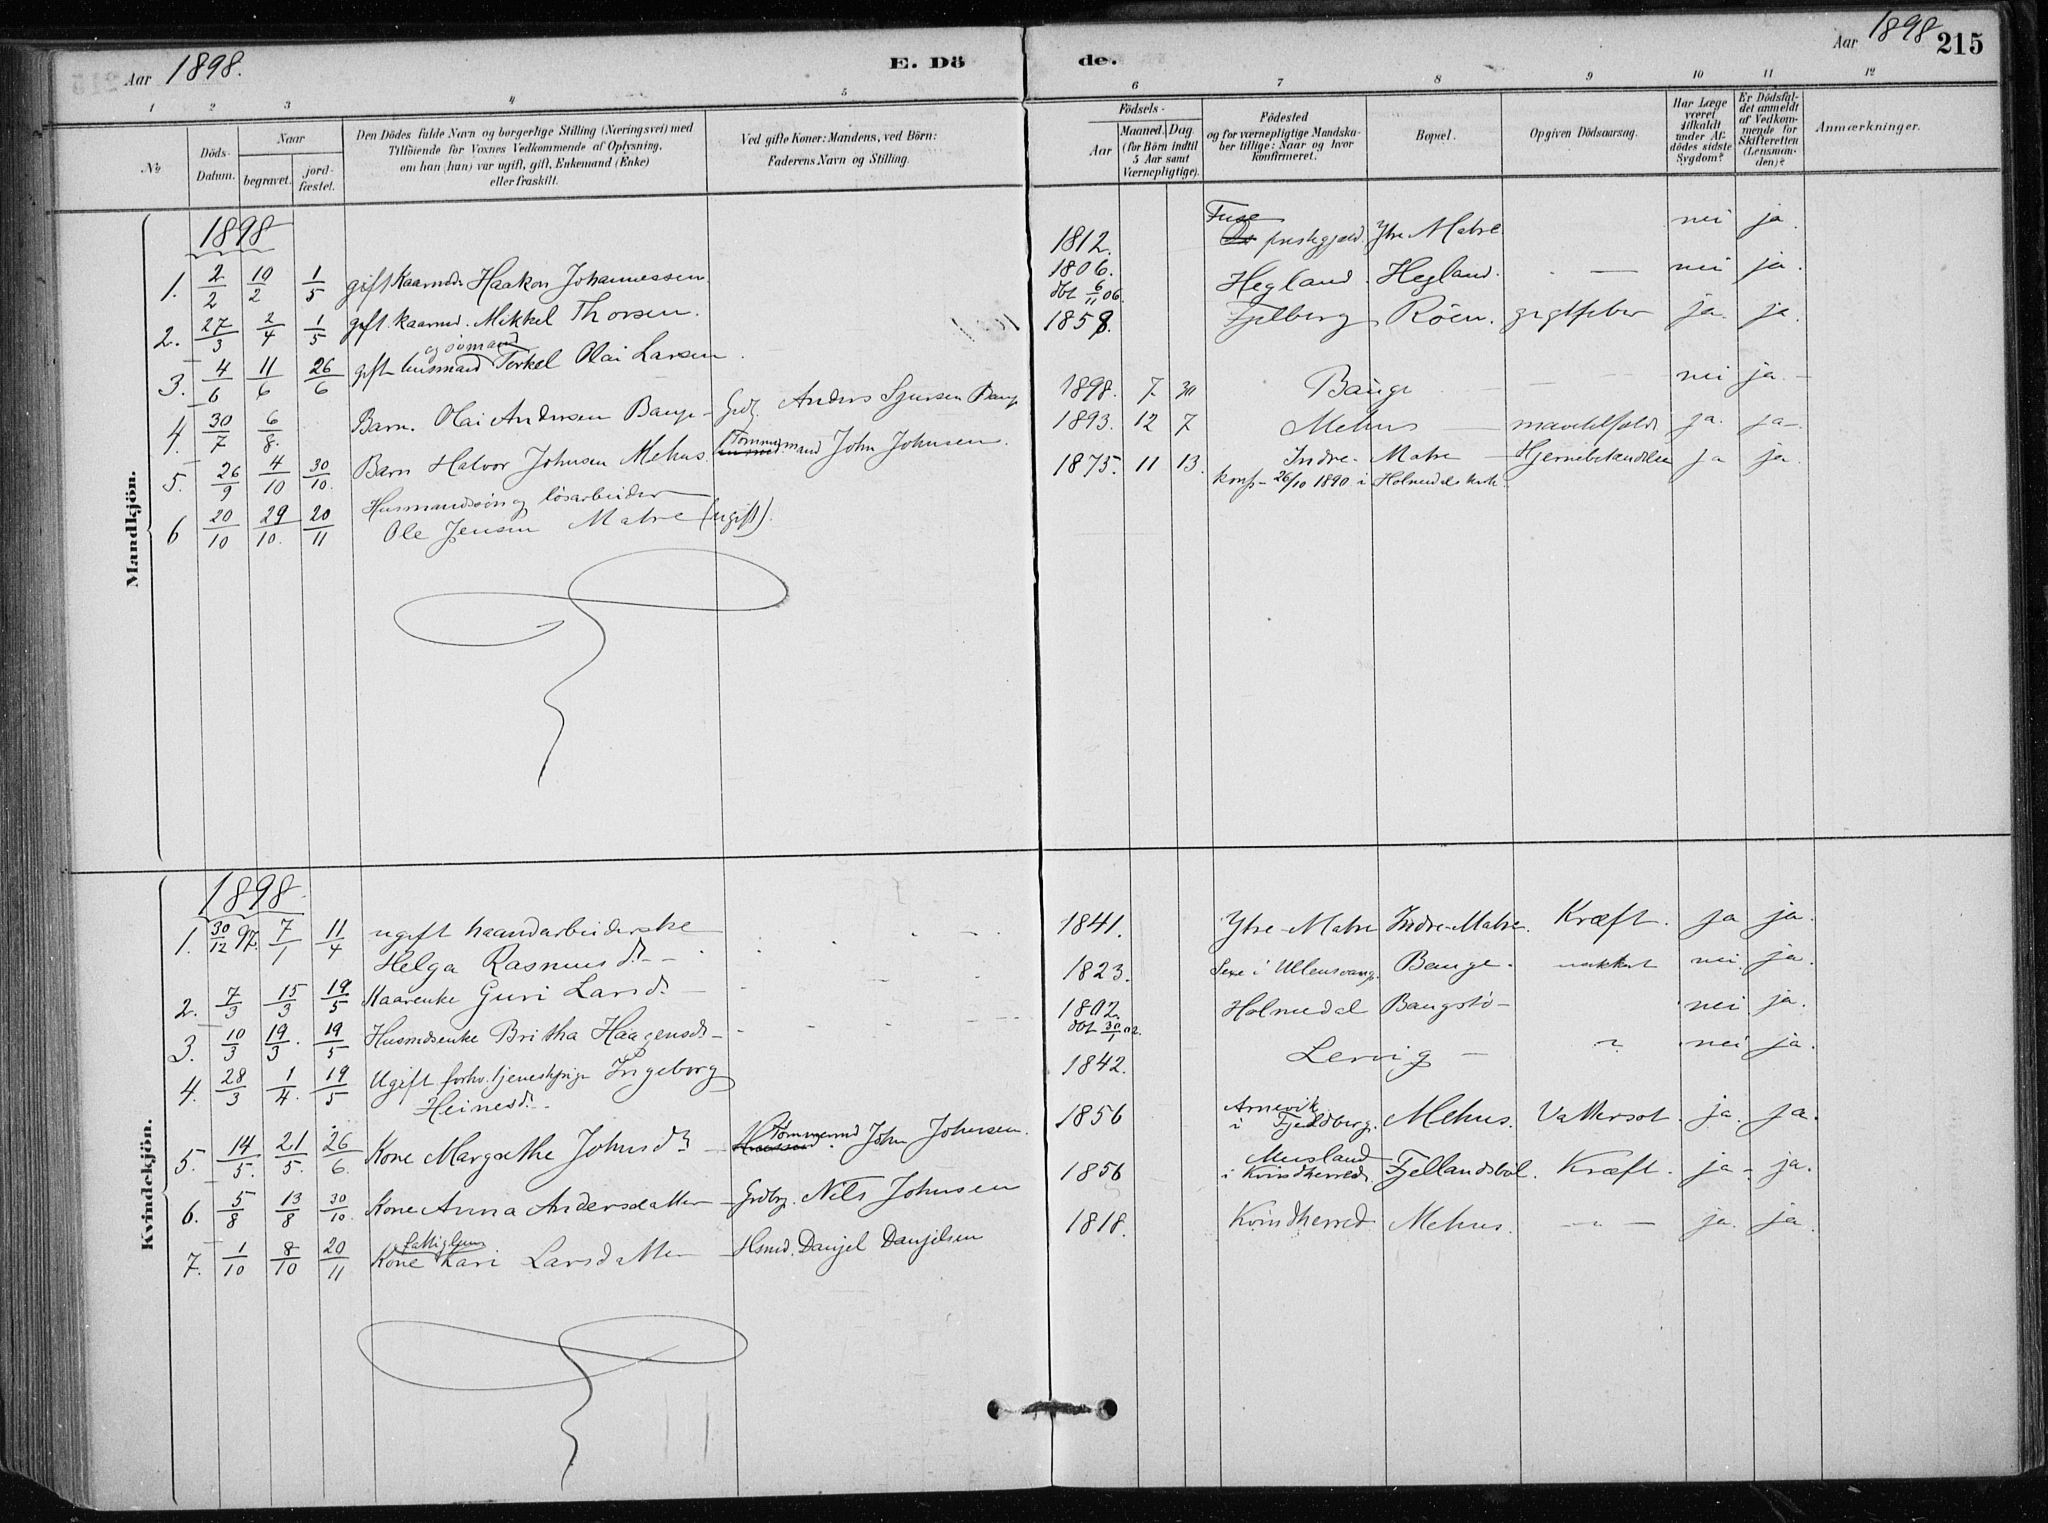 Aar 1898.
E. Dö
de.
Aar 1898
215
1 2 3 4 5 6 7 8 9 10 11 12
No
Döds-Datum.
Naar
begravet.
jord-fæstet.
Den Dödes fulde Navn og borgerlige Stilling (Næringsvei) med
Tilföiende for Voxnes Vedkommende af Oplysning,
om han (hun) var ugift, gift, Enkemand (Enke)
eller fraskilt.
Ved gifte Koner: Mandens, ved Börn:
Faderens Navn og Stilling.
Födsels-
Aar
Maaned. Dag.
(for Börn indtil
5 Aar samt
Værnepligtige).
Födested
og for værnepligtige Mandska-
ber tillige: Naar og hvor
konfirmeret.
Bopæl.
Opgiven Dödsaarsag.
Har Læge
været
tilkaldt
under Af-
dödes sidste
Sygdom?
Er Dödsfal-
det anmeldt
af Vedkom-
mende for
Skifteretten
(Lensman-
den)?
Anmærkninger.
Mandkjön.
1898
1. 2/2 10/2 1/5 gift Kaarmd. Haakon Johannessen 1812. Fuse præstegjeld. Ytre Matre nei ja.
2. 27/3 2/4 1/5 gift kaarmd. Mikkel Thorsen. 1806. dbt 6/11 06. Hegland Hegland. - nei ja.
3. 4/6 11/6 26/6 gift husmand og sömand Torkel Olai Larsen 1858. Fjelberg Röen. gigtfeber ja. ja.
4. 30/7 6/8. Barn. Olai Andersen Bauge - Grdbr. Anders Sjursen Bauge 1898. 7. 30 Bauge - nei ja -
5. 26/9 4/10 30/10. Barn Halvor Johnsen Mehus. Tömmermand John Johnsen. 1893. 12 7 Mehus - ja. ja -
6 20/10 29/10. 20/11 Husmandssön og lösarbeider
Ole Jensen Matre (ugift). 1875. 11 13. Indre - Matre - Hjernebetændelse ja ja.
konf - 26/10 1890 i Holmedals kirke.
Kvindekjön.
1898.
1. 30/12 97. 7/1 11/4 ugift haandarbeiderske
Helga Rasmusd. - 1841. Ytre - Matre Indre - Matre. Kræft. ja ja.
2. 7/3 15/3 19/5 Kaarenke Guri Larsd. - 1823. Sexe i Ullensvang. Bauge. nei. ja.
3. 10/3 19/3. 19/5 Husmdsenke Britha Haagensd. - 1802. dbt 30/1 02. Holmedal Baugstö - nei ja.
4. 28/3 1/4. 19/5 Ugift forhv. tjenestepige Ingeborg
Heinesd. - 1842. Lervig - nei ja.
5. 14/5. 21/5. 26/6. Kone Margrethe Johnsd. - Tömmermd John Johnsen. 1856 Arnevik i Fjeldberg. Mehus. Vattersot. ja. ja.
6. 5/8 13/8 30/10. Kone Anna Andersdatter - Grdbr. Nils Johnsen 1856 Musland i Kvindherred. Fjellandsböl. Kræft. ja - ja.
7. 1/10 8/10 20/11 Kone fattiglem Kari Larsdatter Hsmd. Danjel Danjelsen 1818. Kvindherred. Mehus. - ja. ja.